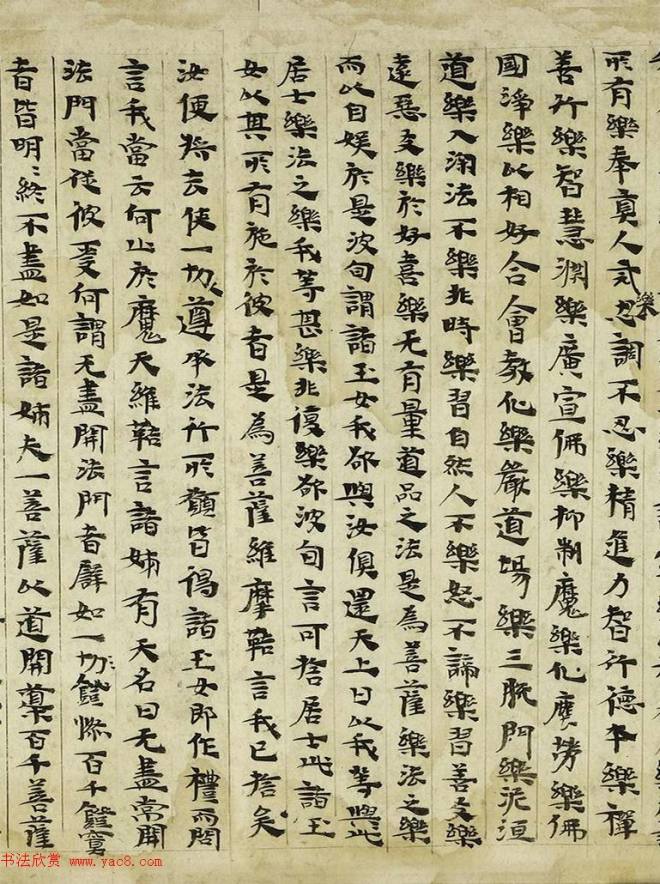 所有樂奉真人樂忍調不忍樂精進力智行德本樂禪
善行樂智慧淵樂廣宣佛樂抑制魔樂化塵勞樂佛
國淨樂以相好合會教化樂嚴道場樂三脫門樂泥洹
道樂入深法不樂非時樂習自然人不樂怒不諦樂習善友樂
遠惡友樂於好喜樂无有量道品之法是為菩薩樂法之樂
而此自娛於是波旬謂諸玉女我欲與汝俱還天上曰以我等與此
居士樂法之樂我等甚樂非復樂欲波旬言可捨居士此諸玉
女以其所有施於彼者是為菩薩維摩鞊言我已捨矣
汝便將去使一切遵承法行所願皆得諸玉女即作禮而問
言我當云何止於魔天維鞊言諸姊有天名曰无盡常開
法門當從彼受何謂无盡開法門者譬如一切鐙燃百千鐙冥
者皆明〻終不盡如是諸姊夫一菩薩以道開導百千菩薩
书法欣赏 www.yac8.com